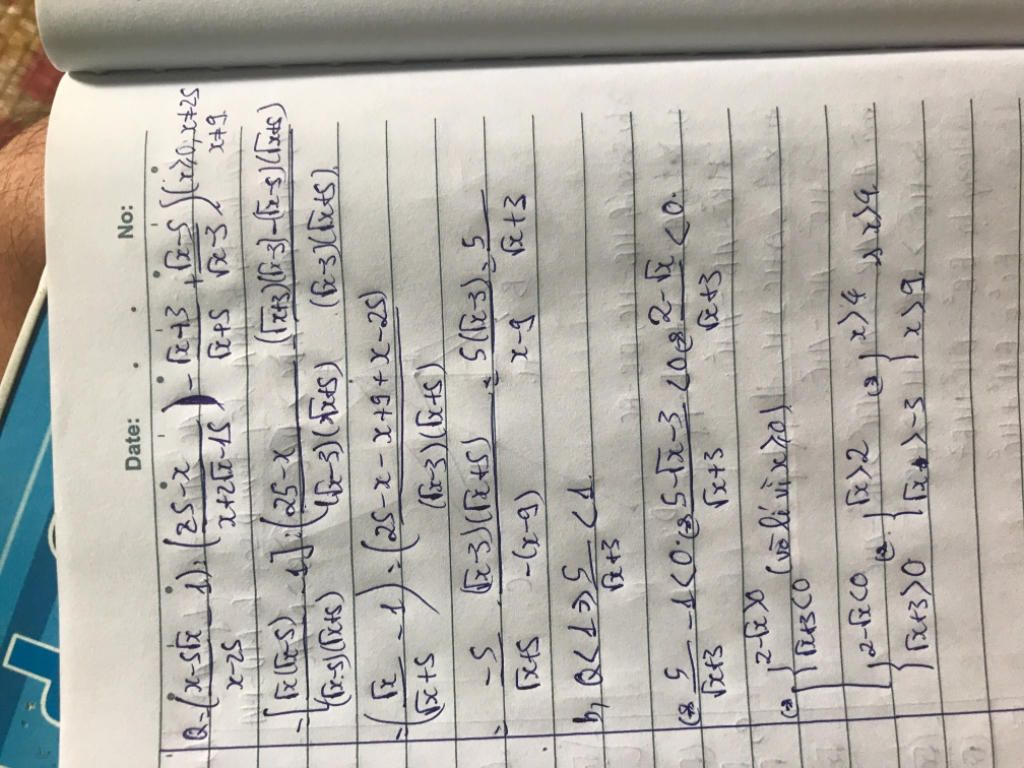 Date: No:
Q = (x-5√x / x-25 - 1) : (25-x / x+2√x-15 - √x+3 / √x+5 + √x-5 / √x-3) (x≥0, x≠25 x≠9
= [√x(√x-5) / (√x-5)(√x+5) - 1] : (25-x / (√x-3)(√x+5) - (√x+3)(√x-3) - (√x-5)(√x+5) / (√x-3)(√x+5)
= (√x / √x+5 - 1) : (25-x-x+9+x-25) / (√x-3)(√x+5)
= -5 / √x+5 . (√x-3)(√x+5) / -(x-9) = 5(√x-3) / x-9 = 5 / √x+3
b, Q<1 => 5 / √x+3 <1
(=) 5 / √x+3 - 1<0 (=) 5-√x-3 / √x+3 <0 (=) 2-√x / √x+3 <0.
(=) { 2-√x>0
√x+3<0 (vô lí vì x≥0)
{ 2-√x<0 (=) { √x>2 (=) { x>4 => x>9
√x+3>0 √x>-3 x>9